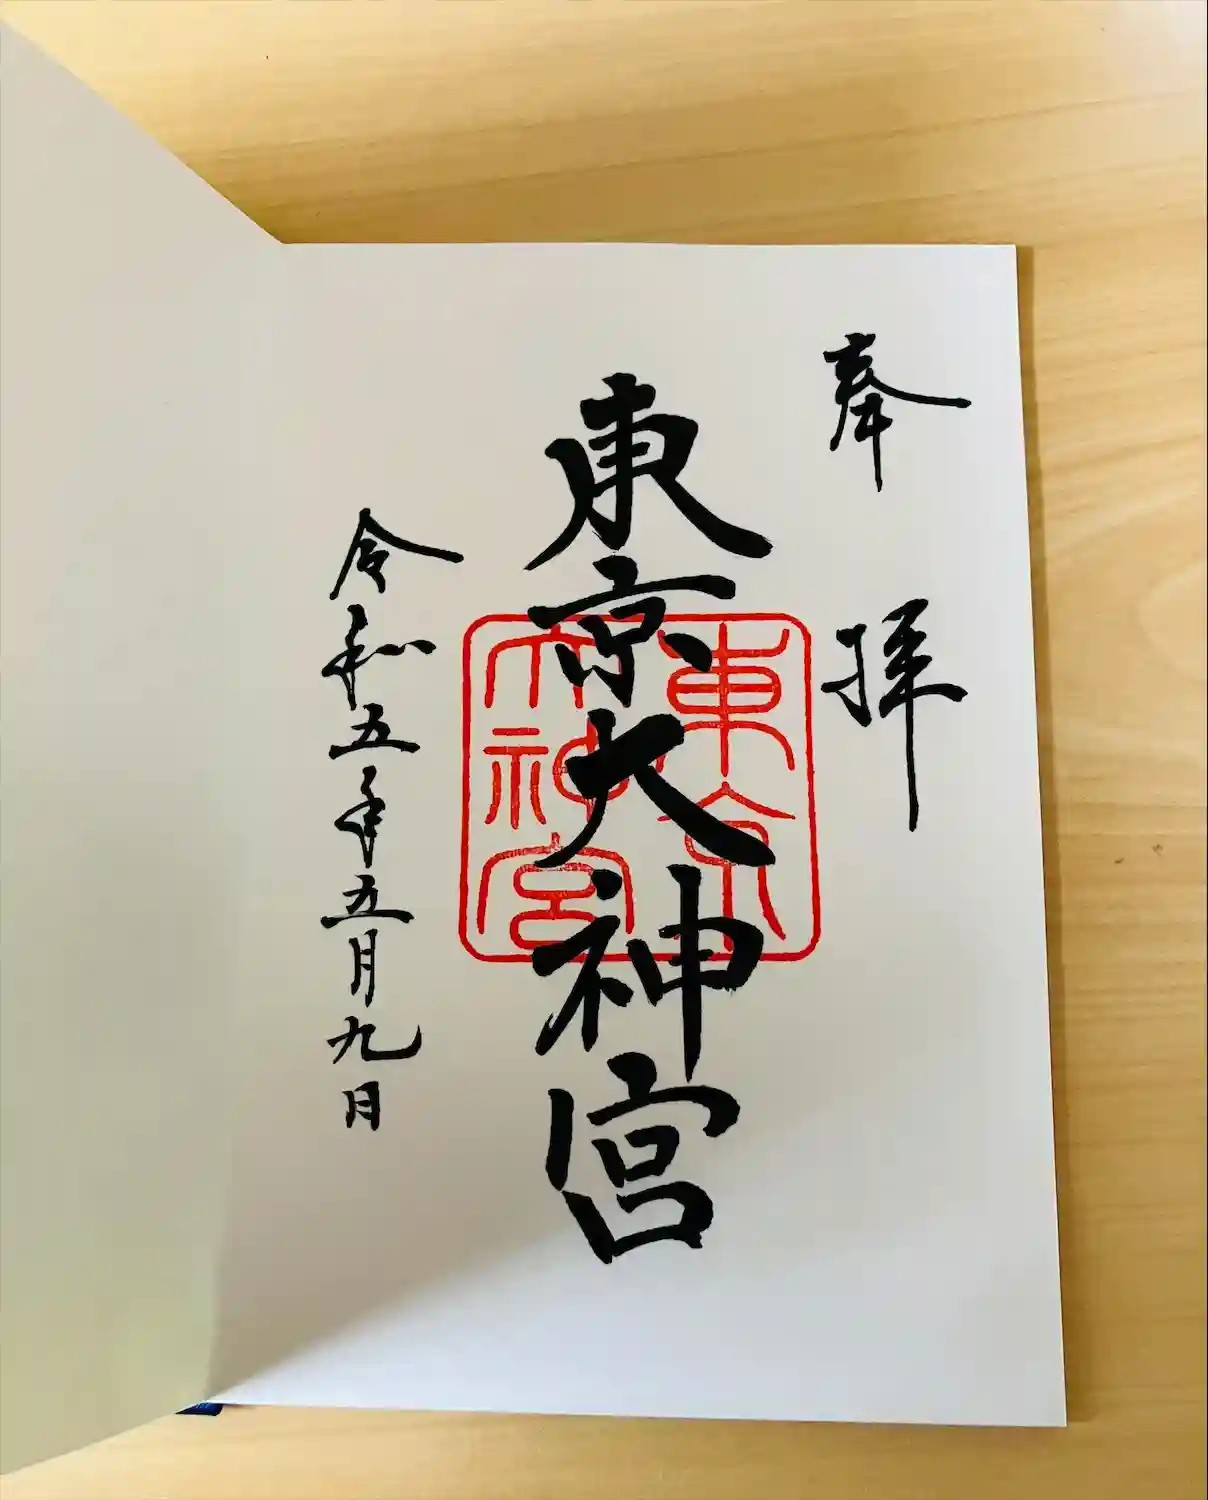 奉拝
東京大神宮
東京
大神宮
令和五年五月九日